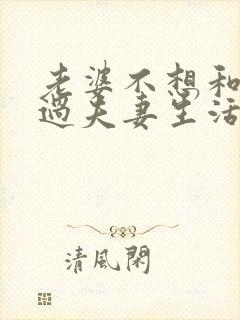 老婆不想和
过夫妻生活
清風閑